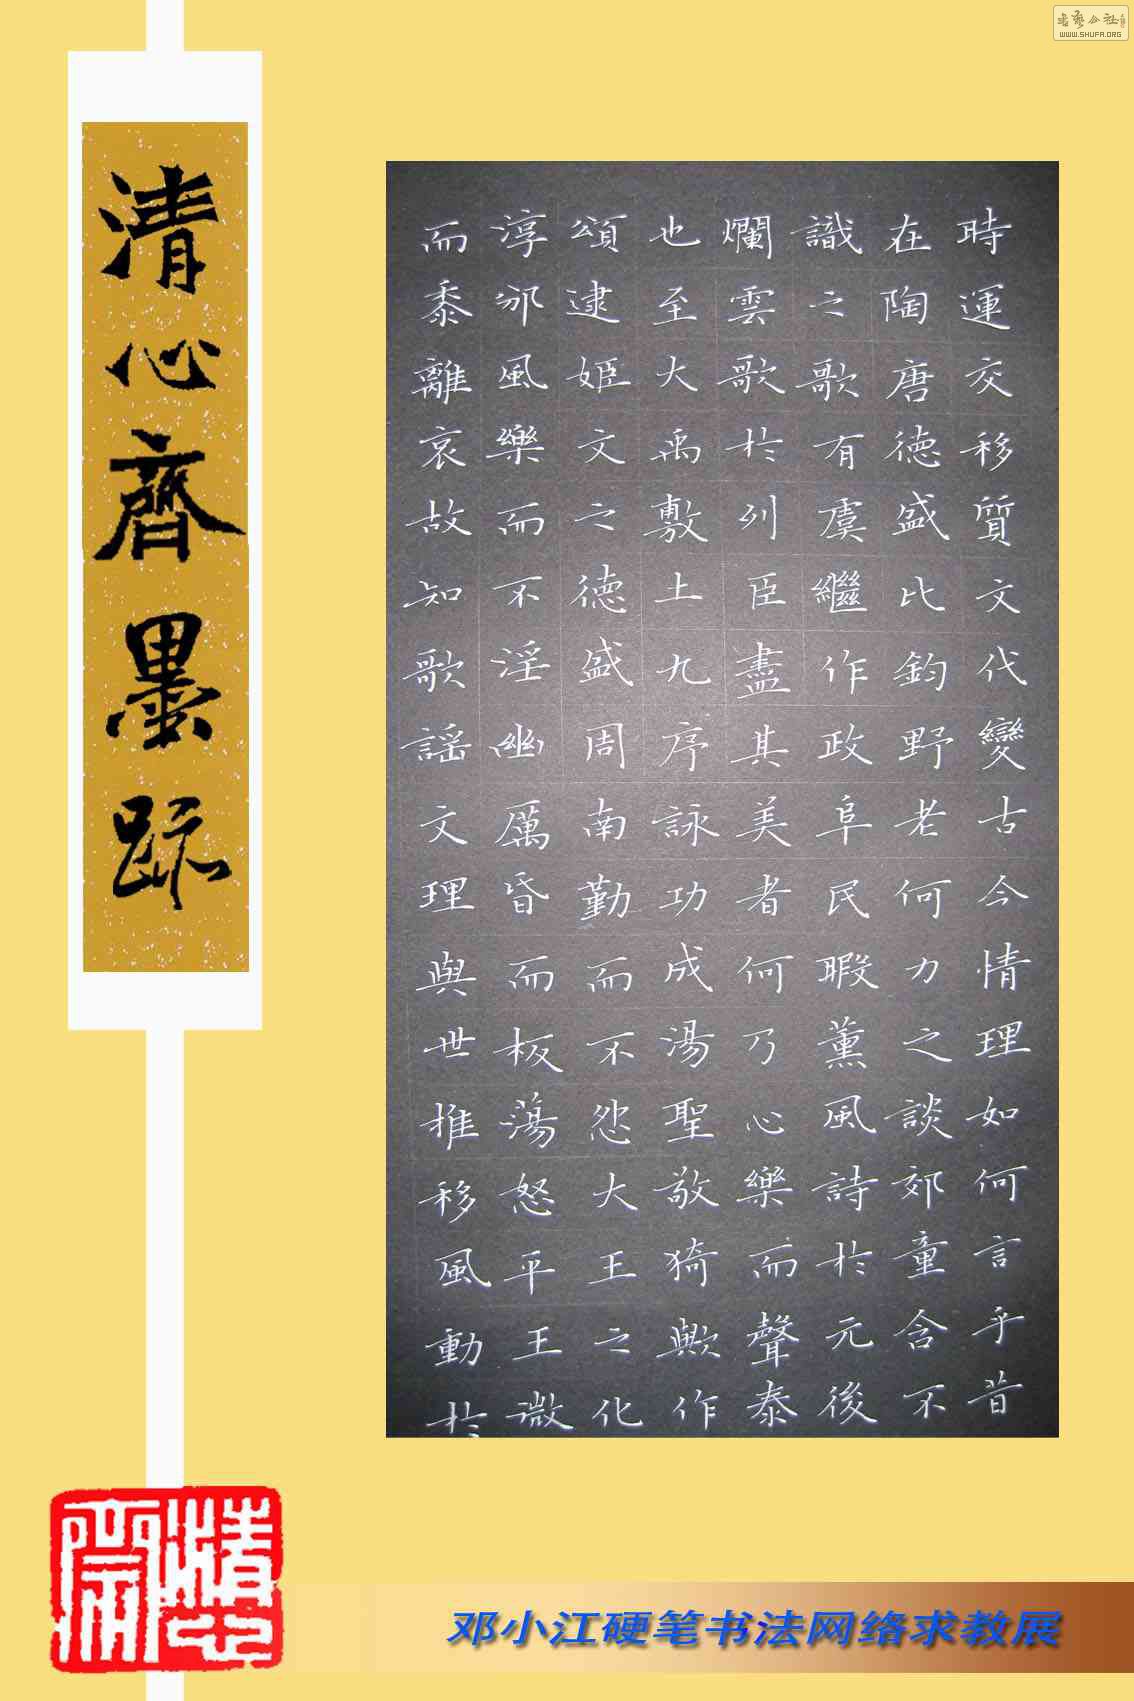 書藝公社
WWW.SHUFA.ORG
清心齊墨跡
時運交移質文代變古今情理如何言乎昔
在陶唐德盛比鈞野老何力之談郊童含不
識之歌有虞繼作政阜民暇薰風詩於元後
爛雲歌於列臣盡其美者何乃心樂而聲泰
也至大禹敷土九序詠功成湯聖敬猗歟作
頌逮姬文之德盛周南勤而不怨大王之化
淳邠風樂而不淫幽厲昏而板蕩怒平王微
而黍離哀故知歌謠文理與世推移風動於
清心齋
邓小江硬笔书法网络求教展